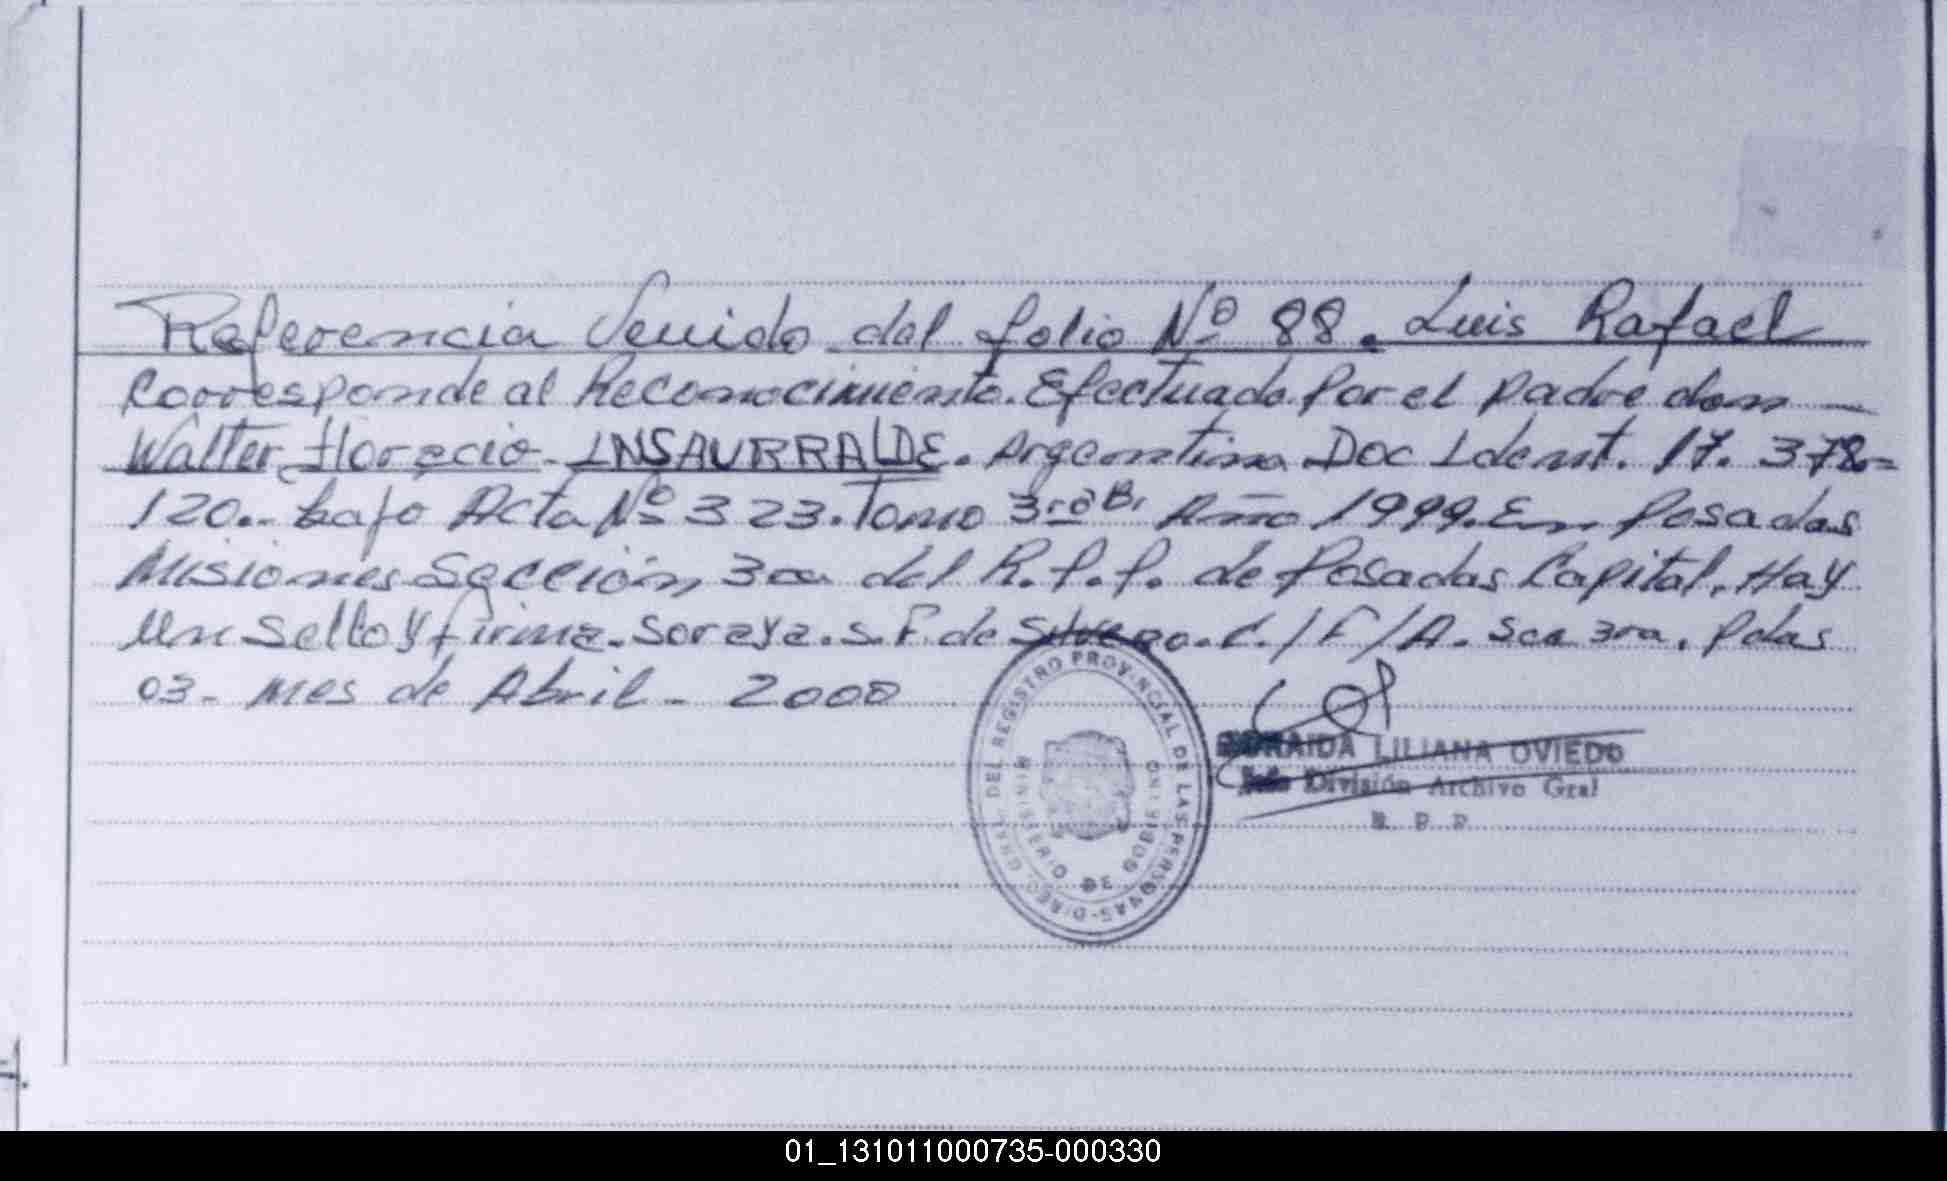 Referencia Venido del folio Nº 88. Luis Rafael
Corresponde al Reconocimiento. Efectuado Por el padre don
Walter Horacio INSAURRALDE. Argentino Doc Ident. 17. 378-
120.- bajo Acta Nº 323. Tomo 3ro B. Año 1999. En Posadas
Misiones Sección 3ra del R.P.P. de Posadas Capital. Hay
Un Sello y firma. Soraya. S. F. de Silvero. C./F/A. Sca 3ra. Pdas
03- mes de Abril - 2000
DIREC. GRAL. DEL REGISTRO PROVINCIAL DE LAS PERSONAS
MINISTERIO DE GOBIERNO
LILIANA OVIEDO
División Archivo Gral
01_131011000735-000330